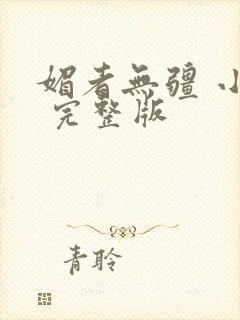 媚者無疆 小
完整版
青聆